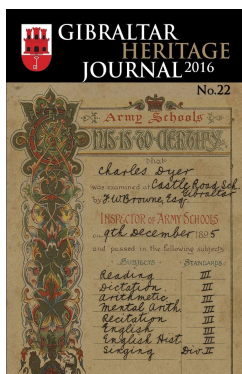 GIBRALTAR
HERITAGE
JOURNAL 2016
No.22
Army Schools
THIS·IS·TO·CERTIFY,
That
Charles Dyer
was examined at Castle Road Sch.
Gibraltar
by F.W. Browne, Esq.
INSPECTOR OF ARMY SCHOOLS
on 9th December 1895
and passed in the following subjects
- SUBJECTS - STANDARDS.
Reading III
Dictation III
arithmetic III
Mental Arith. III
Recitation III
English III
English Hist. III
Singing Div. II